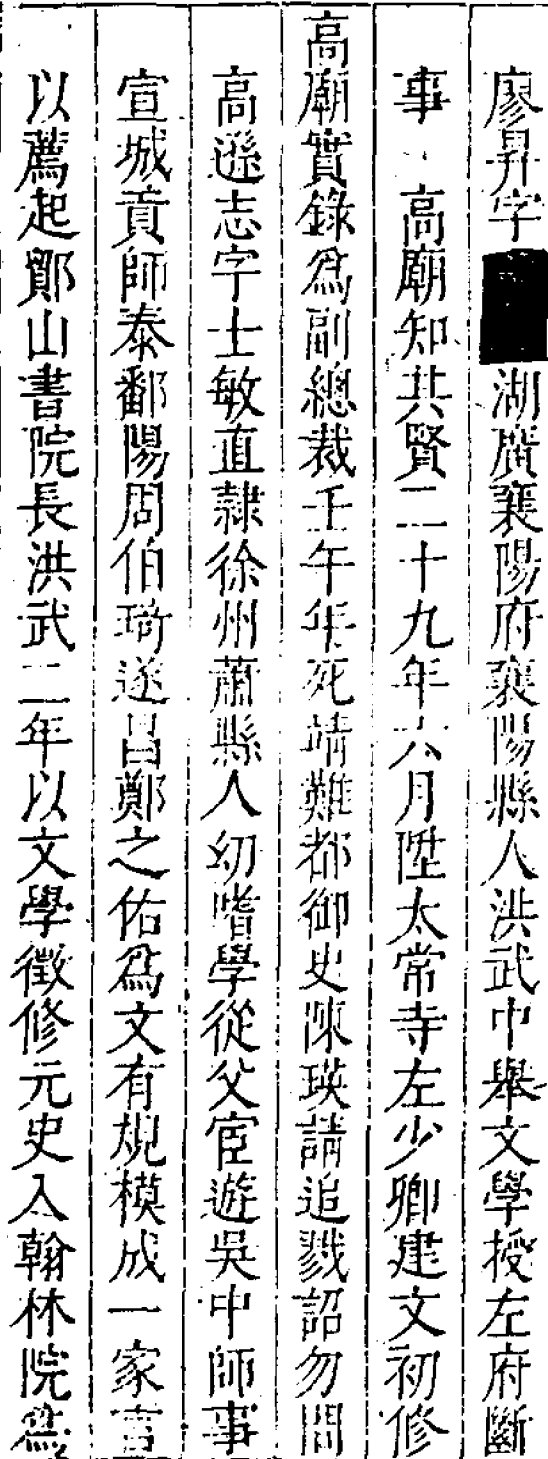 廖昇字湖廣襄陽府襄陽縣人洪武中舉文學授左府斷
事高廟知其賢二十九年六月陞太常寺左少卿建文初修
高廟實錄爲副總裁壬午年死靖難都御史陳瑛請追戮詔勿問
高遜志字士敏直隸徐州蕭縣人幼嗜學從父宦遊吳中師事
宣城貢師泰鄱陽周伯琦遂昌鄭之佑爲文有規模成一家言
以薦起鄮山書院長洪武二年以文學徵修元史入翰林院爲